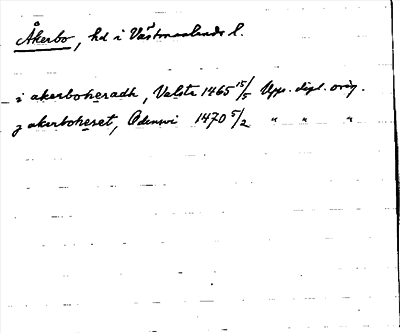 Åkerbo, hd i Västmanlands l.
i akerboheradh, Valstr 1465 15/5 Upps. dipl. orig.
j akerboheret, Odinswi 1470 5/2 " " "